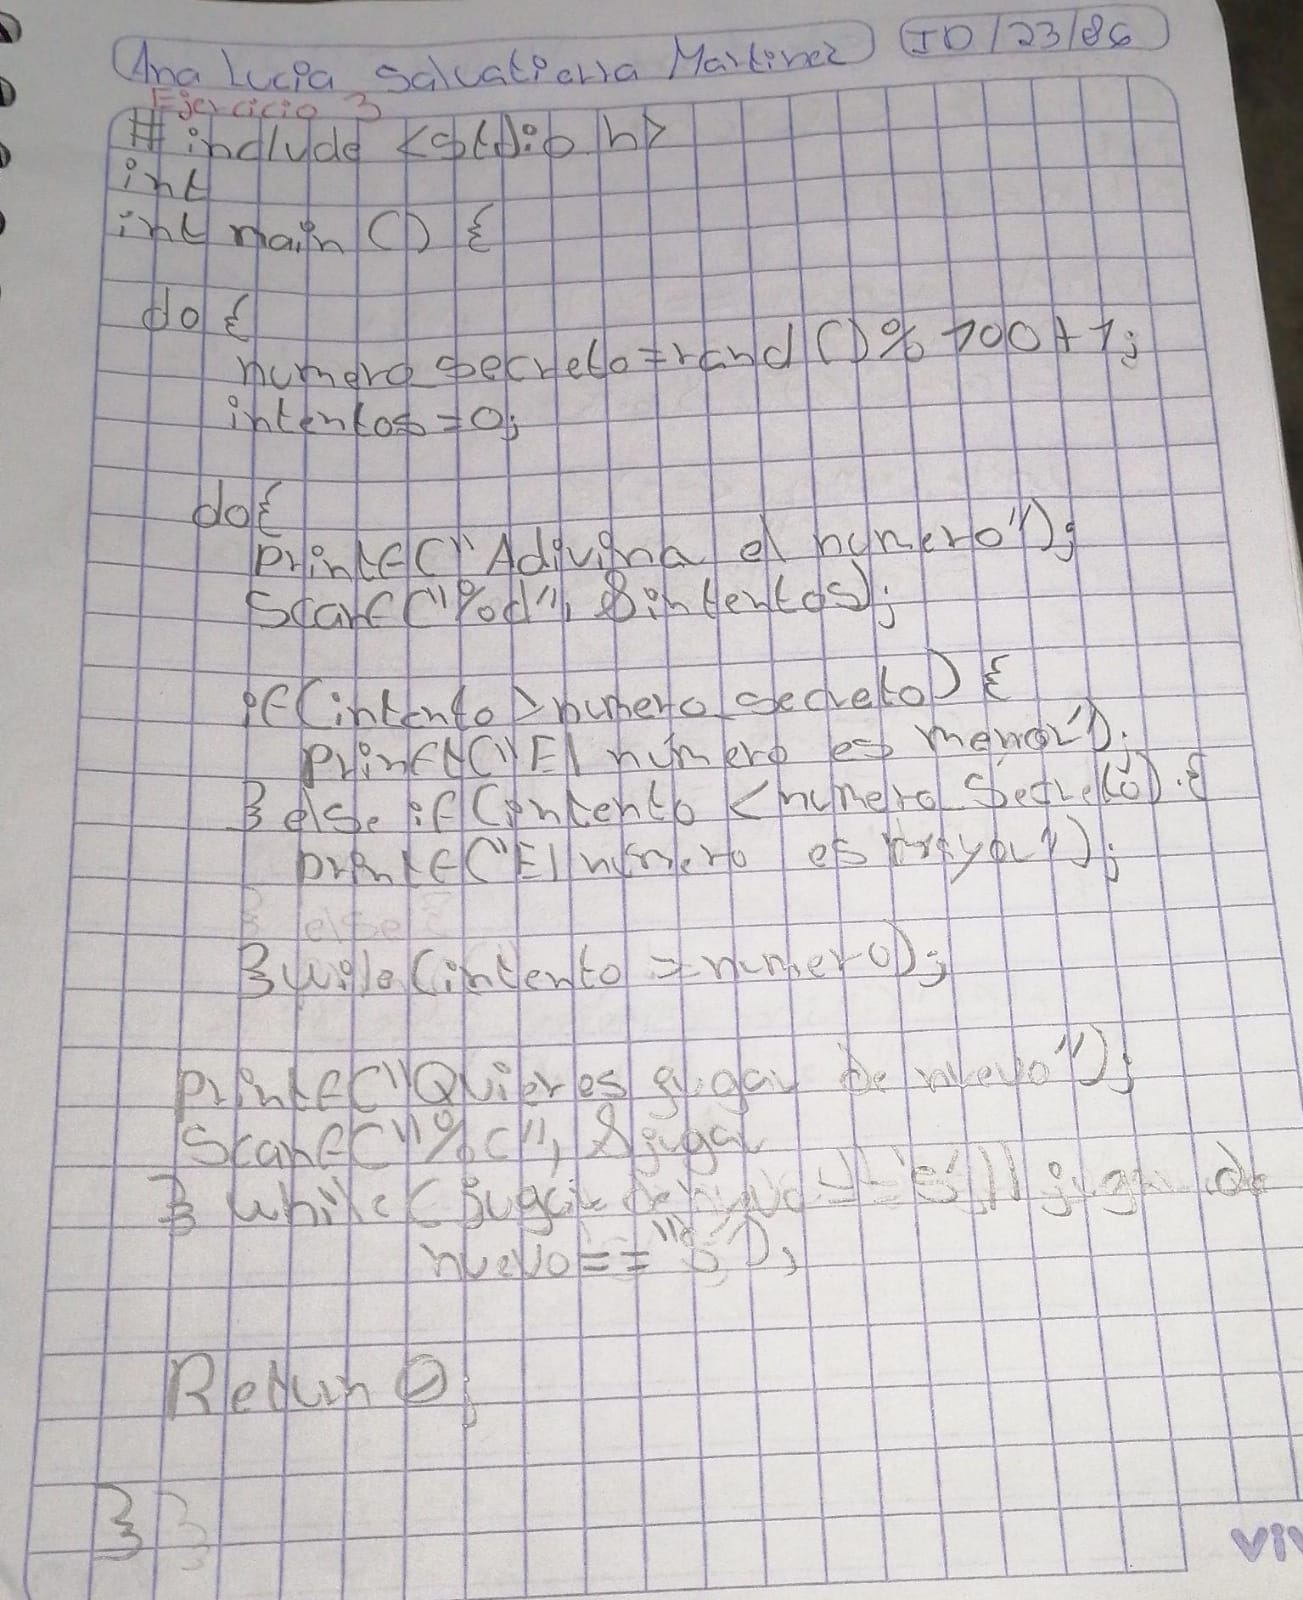 Ana Lucia Salvatierra Martinez ID/23/86
Ejercicio 3
#include <stdio h>
int
int main () {
do {
numero_secreto=rand()%100+1;
intentos=0;
do{
printf("Adivina el numero");
Scanf("%d", &intentos);
if(intento>numero_secreto) {
printf("El numero es menor");
} else if(intento <numero_secreto).{
printf("El numero es mayor");
} else {
} wile(intento =numero);
printf("Quieres gugar de nuevo");
Scanf("%c", &jugar
} while(jugar de nuevo=='s'|| jugar de
nuevo=="s");
Return 0;
} }
viv